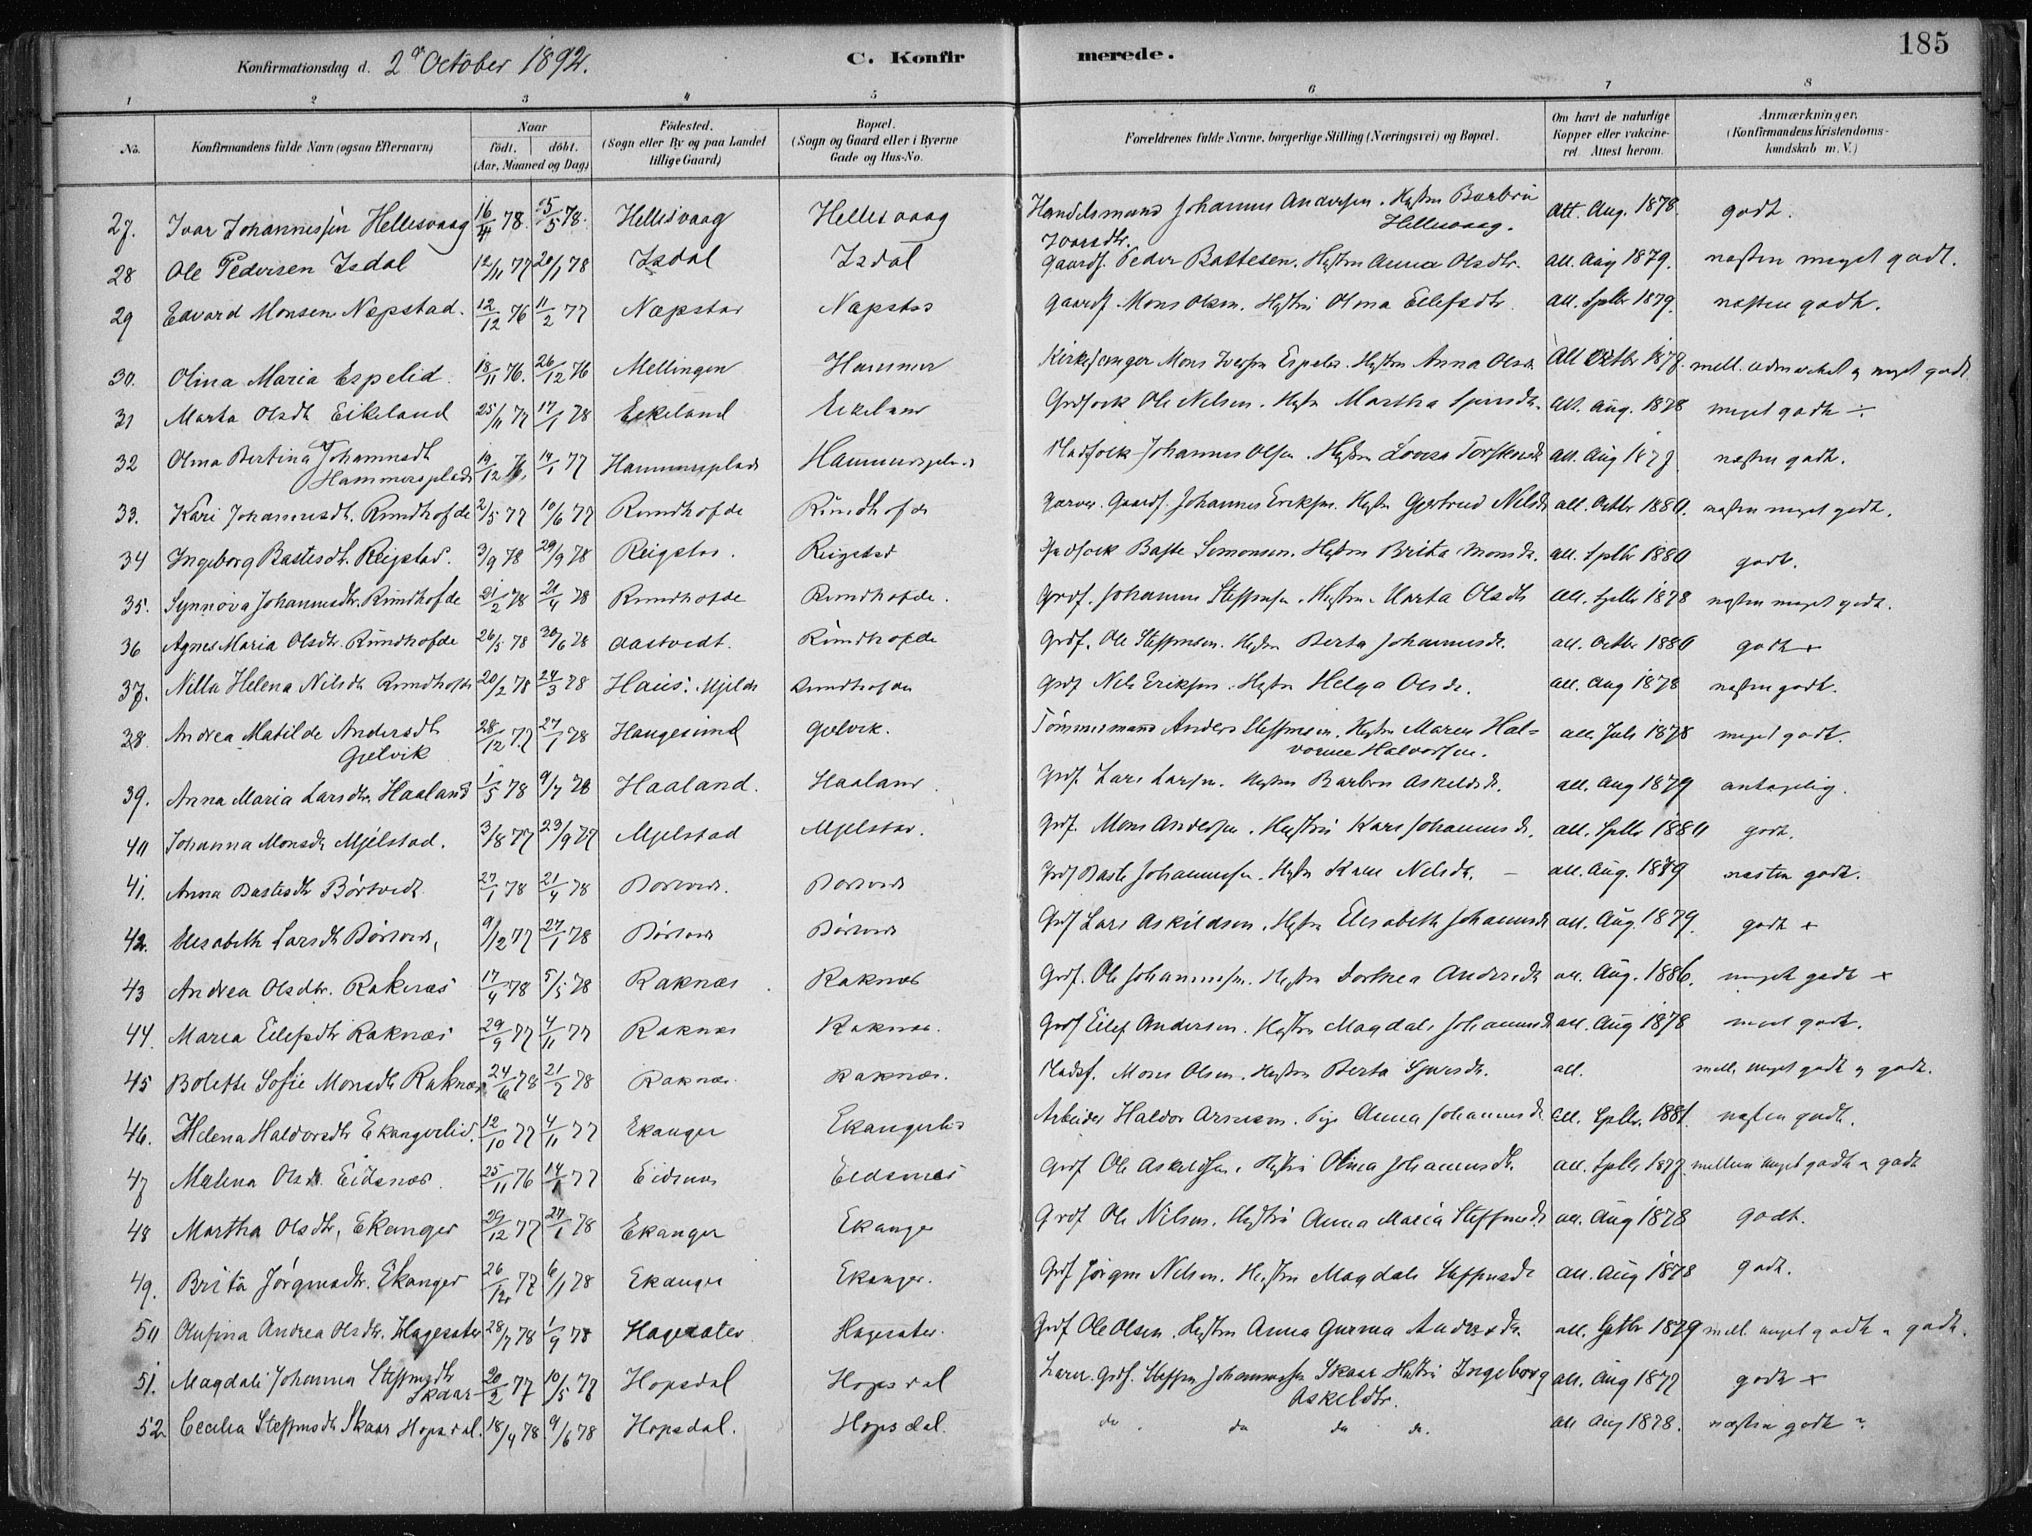 185
Konfirmationsdag d. 2den October 1892. C. Konfirmerede.
1 2 3 4 5 6 7 8
No. Konfirmandens fulde Navn (ogsaa Efternavn) Naar født. døbt. (Aar, Maaned og Dag) Fødested. (Sogn eller By og paa Landet tillige Gaard) Bopæl. (Sogn og Gaard eller i Byerne Gade og Hus-No. Forældrenes fulde Navne, borgerlige Stilling (Næringsvei) og Bopæl. Om havt de naturlige Kopper eller vakcineret. Attest herom. Anmærkninger. (Konfirmandens Kristendomskundskab m. V.)
27. Ivar Johannessen Hellesvaag 16/4 78. 25/5 78. Hellesvaag Hellesvaag Handelsmand Johannes Andersen. Hustru Barbro Ivarsdtr. Hellesvaag. att. Aug. 1878 godt.
28 Ole Pedersen Isdal 12/11 77 20/1 78 Isdal Isdal Gaardf. Peder Battesen. Hustru Anna Olsdtr. att. Aug 1879. næsten meget godt.
29 Edvard Monsen Nepstad. 12/12 76 11/2 77 Nepstad Nepstad Gaardf Mons Olsen. Hustru Olina Eilefsdtr att. Septbr 1879. næsten godt.
30. Olina Maria Espelid 18/11 76. 26/12 76 Mellingen Hammer Kirkesanger Mons Iversen Espelid. Hustru Anna Olsdtr Att Octbr 1878. mell. udmærket og meget godt
31 Marta Olsdtr Eikeland 25/11 77 17/1 78 Eikeland Eikeland Grdfolk Ole Nilsen. Hustru Martha Sjursdtr. att. Aug. 1878 meget godt
32 Olina Bertina Johannesdtr Hammersplads 19/12 76. 14/1 77 Hammersplads Hammersplads Pladsfolk Johannes Olsen. Hustru Lovisa Torstensdtr att. Aug 1877 næsten godt.
33. Kari Johannesdtr. Rundhofde 2/5 77 10/6 77 Rundhofde Rundhofde Garver Gaardf. Johannes Eriksen. Hustru Gjertrud Nilsdtr att. Octbr 1880. næsten meget godt.
34 Ingeborg Bastesdtr. Reigstad. 3/9 78 29/9 78 Reigstad. Reigstad Gaardfolk Baste Simonsen. Hustru Brita Monsdtr. att. Septbr 1880 godt.
35. Synnøva Johannesdtr. Rundhofde 21/2 78 21/4 78 Rundhofde Rundhofde. Grdf. Johannes Steffensen. Hustru Marta Olsdtr att. Septbr 1878 næsten meget godt.
36 Agnes Maria Olsdtr. Rundhofde 26/5 78 30/6 78 Aastvedt. Rundhofde Grdf. Ole Steffensen. Hustru Berta Johannesdtr. att. Octbr 1880 godt +
37. Nilla Helena Nilsdtr Rundhofde 20/2 78 24/3 78 Haus. Mjelde Rundhofde Grdf Nils Eriksen. Hustru Helga Olsdtr. att. Aug 1878 næsten godt.
38. Andrea Matilde Andersdtr Gjelvik 28/12 77 27/1 78 Haugesund Gjelvik. Tømmermand Anders Steffensen. Hustru Maren Halvorine Halvorsen. att. Juli 1878 meget godt.
39. Anna Maria Larsdtr. Haaland 1/5 78 9/7 78 Haaland. Haaland. Grdf. Lars Larsen. Hustru Barbro Askildsdtr. att. Aug 1879 antagelig.
40 Johanna Monsdtr Mjelstad. 3/8 77 23/9 77 Mjelstad Mjelstad. Grdf. Mons Andersen. Hustru Kari Johannesdtr. att. Septbr 1880 godt.
41. Anna Bastesdtr Børtveit 27/1 78 21/4 78 Bortveit. Bortveit Grdf Baste Johannesen. Hustru Kari Nilsdtr. att. Aug. 1879 næsten godt.
42. Elisabeth Larsdtr Børtveit, 9/12 77 27/1 78 Børtveit Børtveit Grdf Lars Askildsen. Hustru Elisabeth Johannesdtr att. Aug. 1879. godt +
43 Andrea Olsdtr. Raknæs 17/4 78 5/5 78 Raknæs Raknæs Grdf. Ole Johannesen. Hustru Dorthea Andersdtr att. Aug. 1886. meget godt +
44. Maria Eilefsdtr Raknæs 29/9 77 4/11 77 Raknæs Raknæs. Grdf Eilef Andersen. Hustru Magdali Johannesdtr att. Aug 1878 meget godt.
45 Bolette Sofie Monsdtr Raknæs 24/6 78 21/7 78 Raknæs. Raknæs. Pladsf. Mons Olsen. Hustru Berta Sjursdtr. att. mell. meget godt og godt.
46. Helena Haldorsdtr Ekangerlid. 12/10 77 4/11 77 Ekanger Ekangerlid Arbeider Haldor Arnesen. Pige Anna Johannesdtr att. Septbr. 1881. næsten godt.
47 Malena Olsdtr. Eidsnæs. 25/11 76 14/1 77 Eidsnæs Eidsnæs Grdf Ole Askildsen. Hustru Olina Johannesdtr. att. Septbr 1877. mellem meget godt og godt
48 Martha Olsdtr. Ekanger 29/12 77 27/1 78 Ekanger Ekanger Grdf Ole Nilsen. Hustru Anna Maria Steffensdtr att. Aug 1878 godt.
49. Brita Jørgensdtr. Ekanger 26/12 77 6/1 78 Ekanger Ekanger. Grdf Jørgen Nilsen. Hustru Magdali Steffensdtr att. Aug 1878 godt.
50 Olufina Andrea Olsdtr. Hagesæter 28/7 78 1/9 78 Hagesæter Hagesæter. Grdf Ole Olsen. Hustru Anna Gurina Andersdtr. att. Septbr 1879 mell. meget godt og godt.
51. Magdali Johanna Steffensdtr Skaar 20/2 77 10/5 77 Hopsdal Hopsdal Lærer. Grdf. Steffen Johannessen Skaar Hustru Ingeborg Askeldtr. att. Aug 1877 godt +
52. Cecilia Steffensdtr Skaar Hopsdal. 18/4 78 9/6 78 Hopsdal. Hopsdal. do. do do do. att Aug 1878. næsten godt